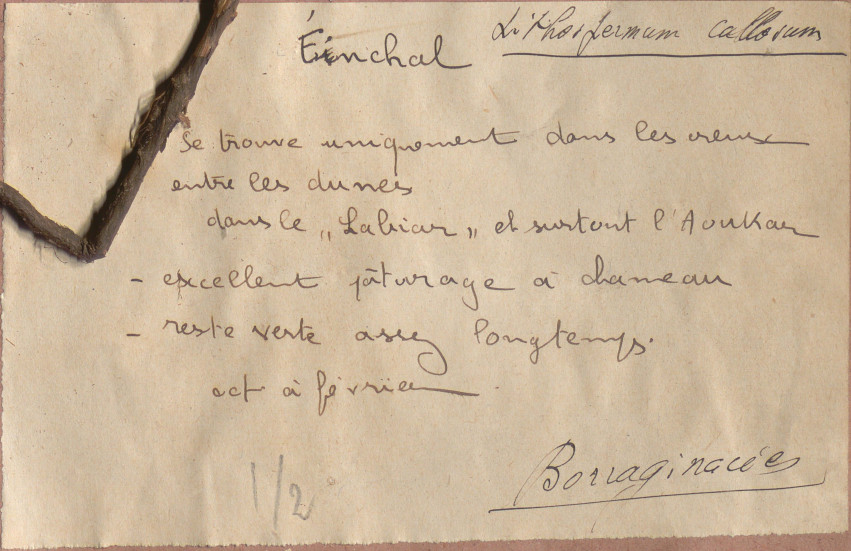 Éinchal
Lithospermum callosum
Se trouve uniquement dans les creux
entre les dunes
dans le „Labiar„ et surtout l'Aoukar
- excellent pâturage à chameau
- reste verte assez longtemps.
oct à février
1/2
Borraginacées